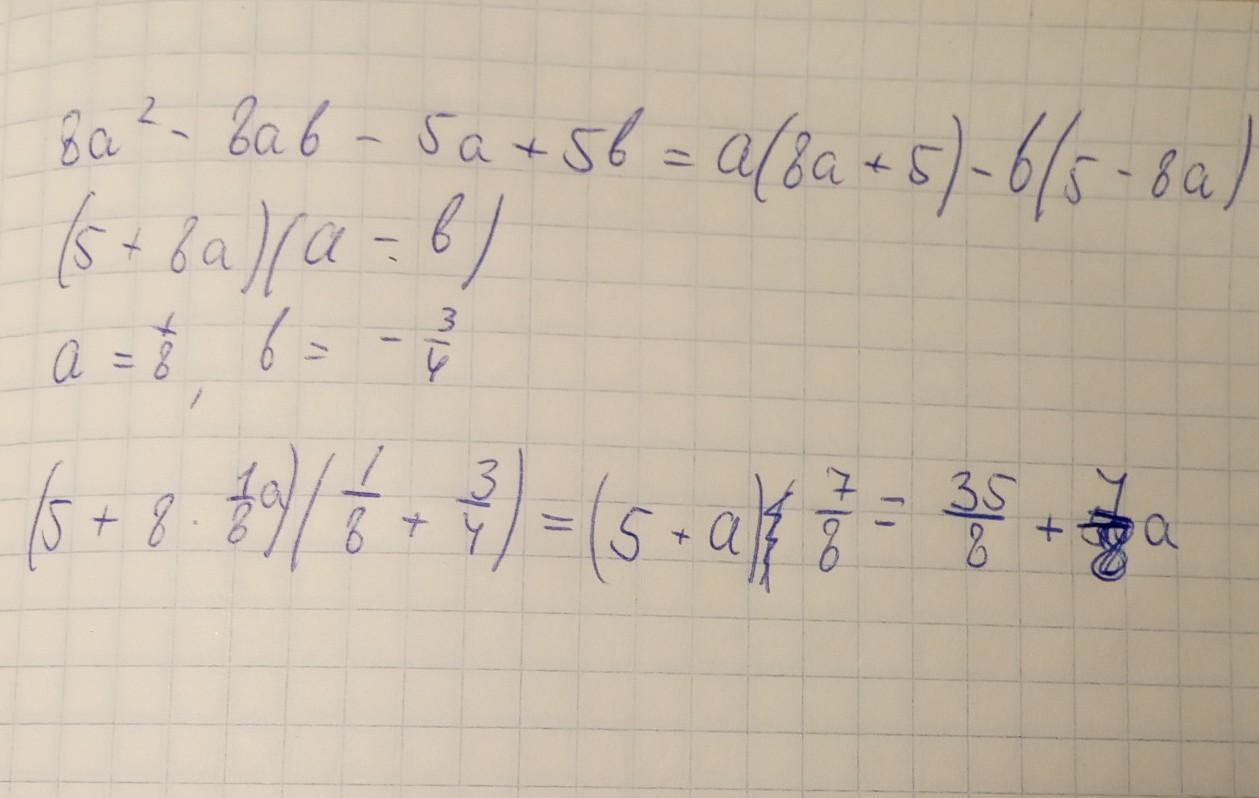 8a² - 8ab - 5a + 5b = a(8a + 5) - b(5 - 8a)
(5 + 8a)(a - b)
a = 1/8, b = - 3/4
(5 + 8 · 1/8 a)(1/8 + 3/4) = (5 + a) 7/8 = 35/8 + 7/8 a